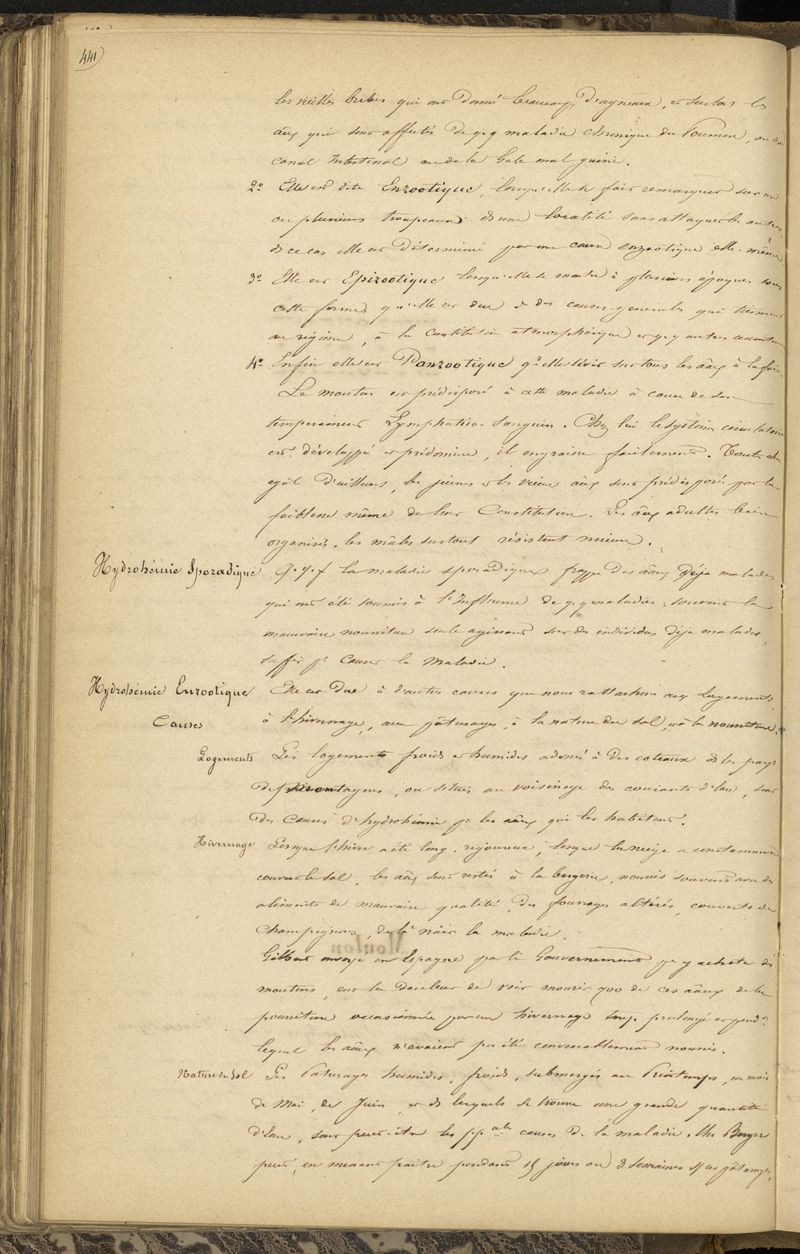 441
les vieilles brebis qui ont donné beaucoup d'agneaux, et surtout les
aux qui sont affectés de q.q maladie chronique du Poumon, ou du
canal Intestinal ou de la Gale mal guérie.
2º Elle est dite Enzootique, lorsqu'elle se fait remarquer sur un
ou plusieurs troupeaux d'une localité sans attaquer les autres,
ds ce cas elle est déterminée par une cause enzootique elle-même.
3º Elle est Epizootique lorsqu'elle se montre à plusieurs époques sous
cette forme, qu'elle est due à des causes générales qui tiennent
au régime, à la Constitution atmosphérique et q.q autres
4º Enfin elle est Panzootique qd elle sévit sur tous les aux à la fois.
Le mouton est prédisposé à cette maladie à cause de son
tempérament Lymphatico-sanguin. Chez lui le système circulatoire
est développé et prédomine, il engraisse facilement. Toute chose
égale d'ailleurs, les jeunes et les vieux aux sont prédisposés par la
faiblesse même de leur Constitution. Les aux adultes bien
organisés, les mâles surtout résistent mieux.
Hydrohémie Sporadique Q.q.f la maladie sporadique frappe des aux déja malades
qui ont été soumis à l'Influence de q.q maladies; souvent la
mauvaise nourriture seule agissant sur des individus déja malades,
suffit pr causer la Maladie.
Hydrohémie Enzootique Elle est Due à d'autres causes que nous rattachons aux Logements,
Causes à l'hivernage, aux pâturages, à la nature du sol, et à la nourriture.
Logements Les logements froids et humides adossés à des coteaux ds les pays
de montagnes, ou situés au voisinage des courants d'eau, sont
des Causes d'hydrohémie pr les aux qui les habitent.
Hivernage Lorsque l'hiver a été long, rigoureux, lorsque la neige a constamment
couvert le sol, les aux sont restés à la bergerie, nourris souvent avec des
aliments de mauvaise qualité, des fourrages altérés, couverts de
Champignons, de là naît la maladie.
Gilbert envoyé en Espagne par le Gouvernement pr y acheter des
moutons, eut la douleur de voir mourir 700 de ces aux de la
pourriture occasionnée par un hivernage trop prolongé et pendt
lequel les aux n'avaient pas été convenablement nourris.
Nature du Sol Les Pâturages humides, froids, submergés au Printemps, au mois
de Mai, de Juin, et ds lesquels se trouve une grande quantité
d'eau, sont peut-être les ppales causes de la maladie. Un Berger
peut, en menant paître pendant 15 jours ou 3 semaines ds ces pâturages,